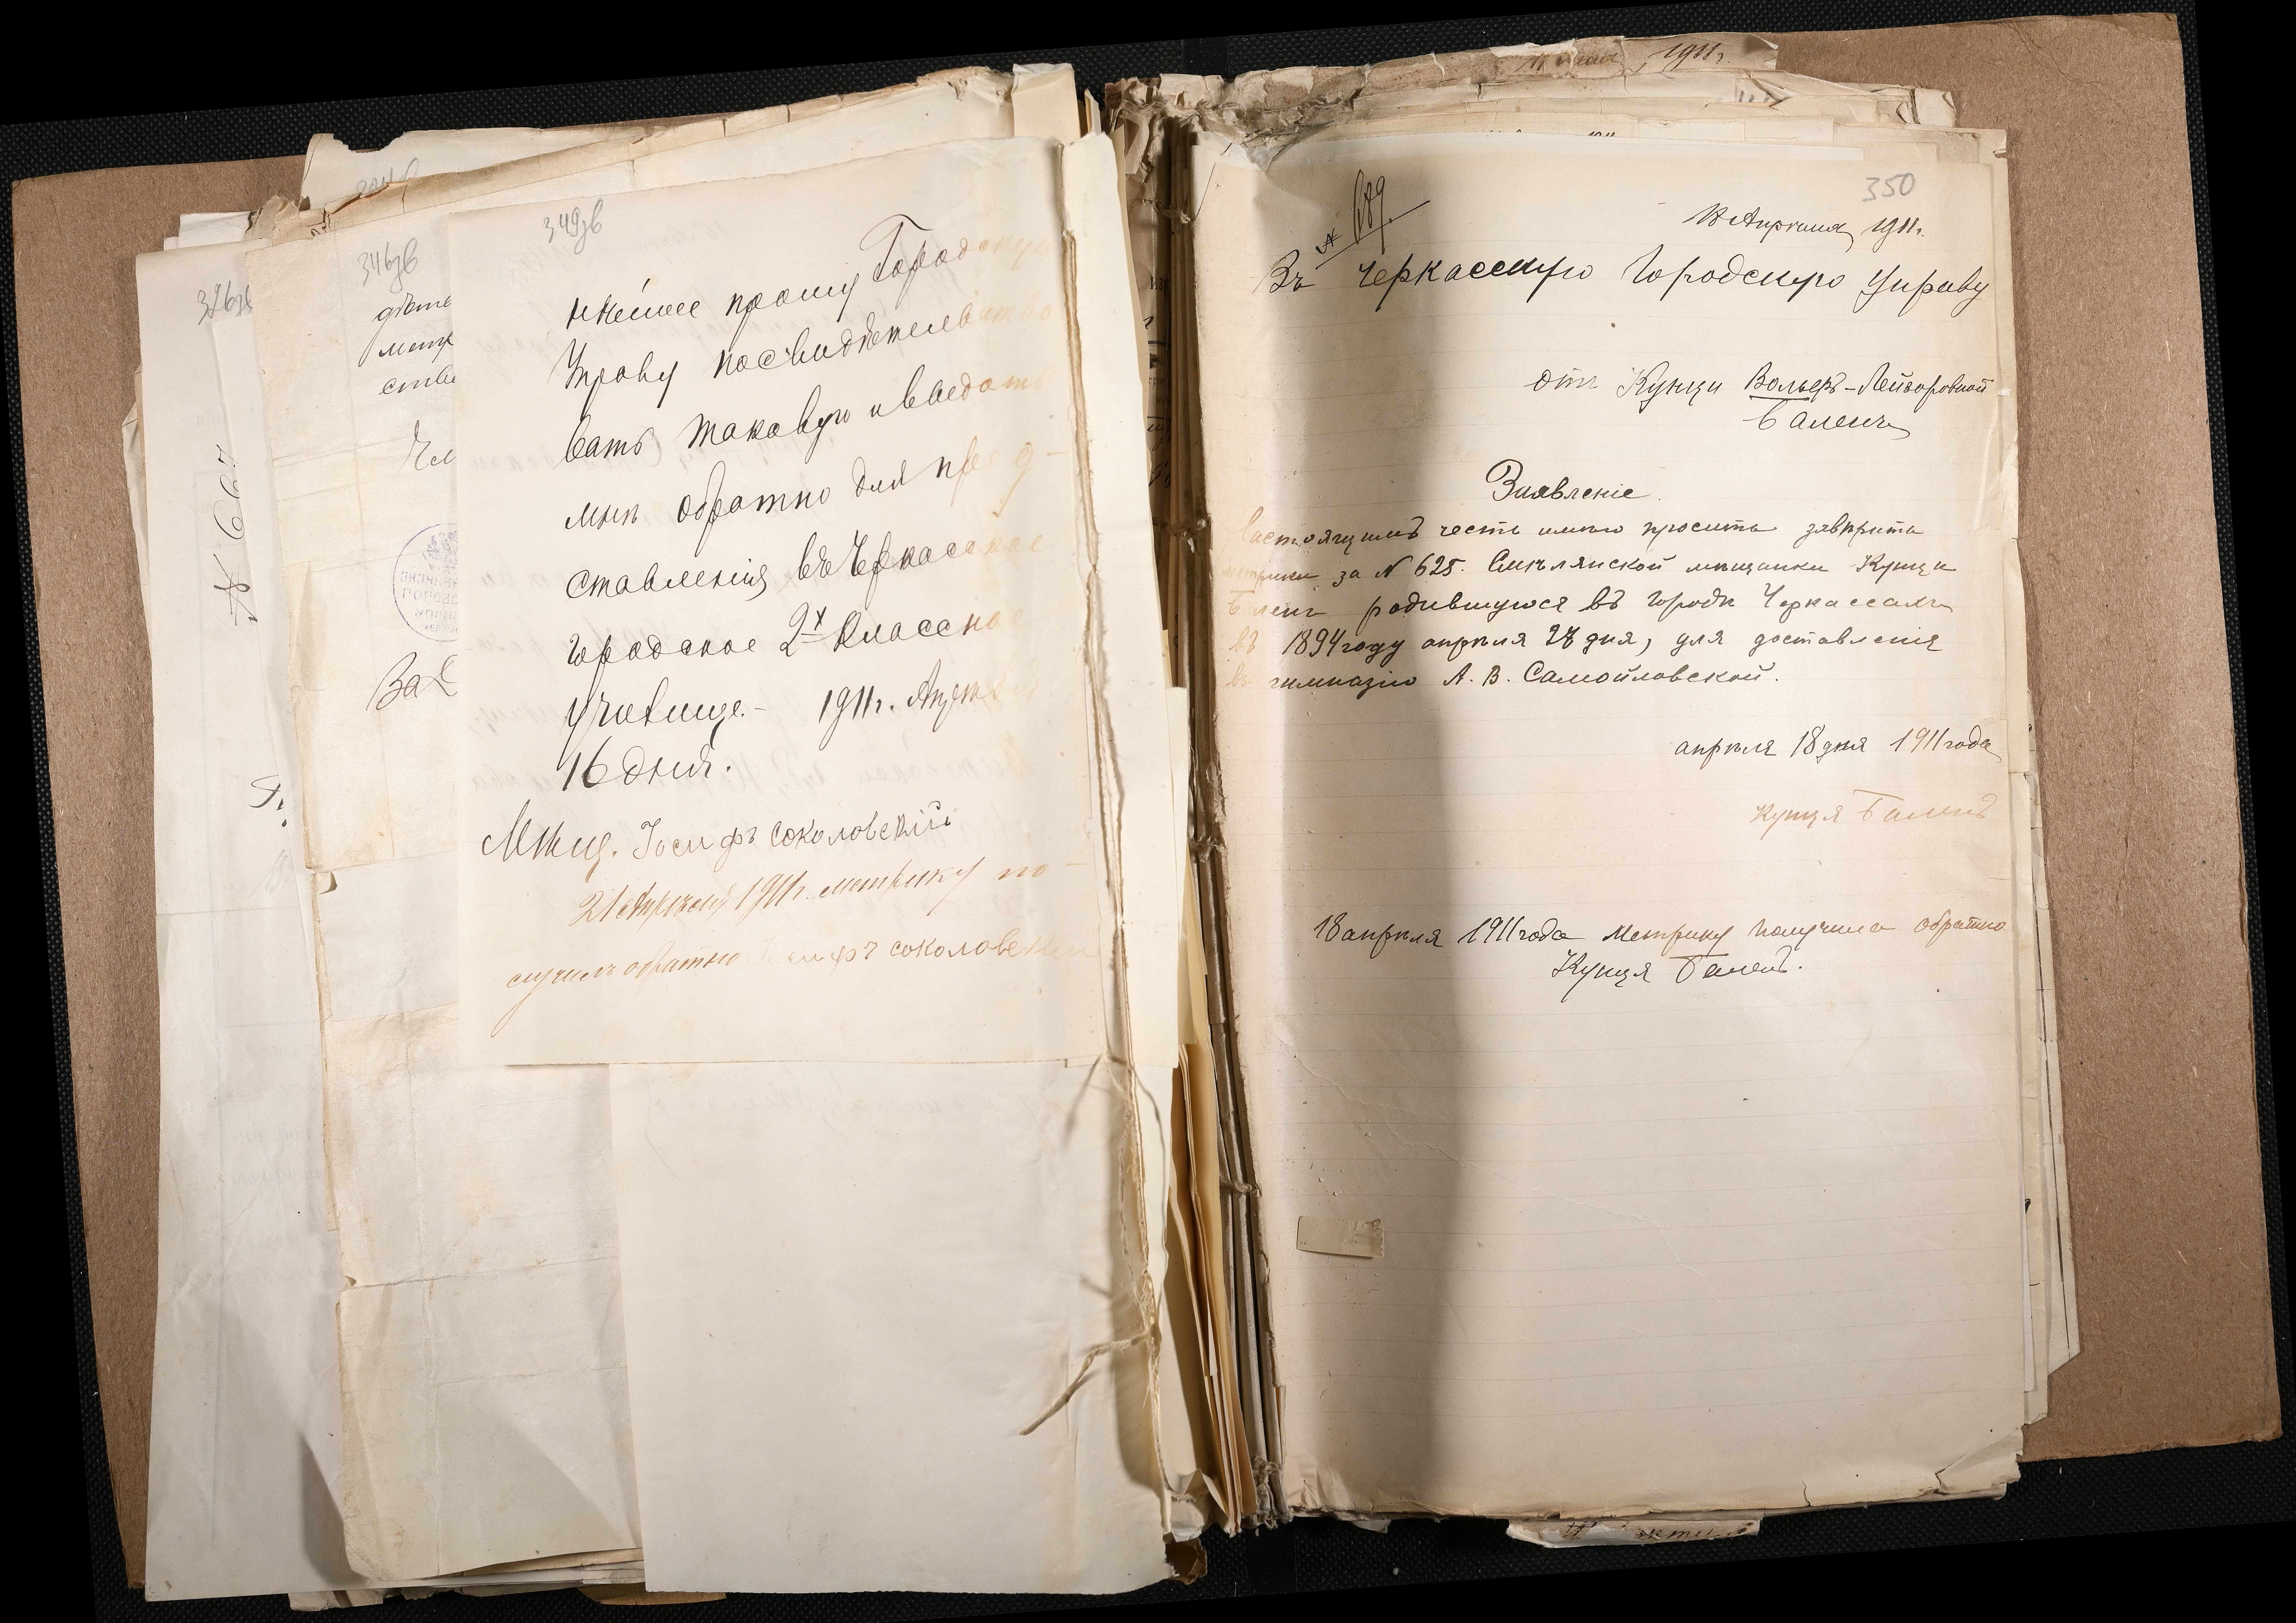 326зв
№ 667
346зв
дѣте
метр
ств
349зв
нѣйшее прошу Городскую
Управу посвидѣтельство
вать таковую и выдать
мнѣ обратно для пред-
ставленія въ Черкасское
городское 2х Классное
училище.- 1911г. Апрѣля
16 дня.
Мѣщ. Іосифъ Соколовскій
21 Апрѣля 1911г. метрику по-
лучилъ обратно Іосифъ Соколовскій
1911г.
350
№ 689.
18 Апрѣля 1911г.
Въ Черкасскую Городскую Управу
отъ Кунци Вольфъ-Лейзоровной
Баленъ
Заявленіе.
Настоящимъ честь имѣю просить завѣрить
метрики за № 625. Смѣлянской мѣщанки Кунци
Баленъ родившуюся въ городѣ Черкассахъ
въ 1894 году апрѣля 27 дня, для доставленія
въ гимназію А. В. Самойловской.
апрѣля 18 дня 1911 года
Кунця Баленъ
18 апрѣля 1911 года Метрику получила обратно
Кунця Баленъ.